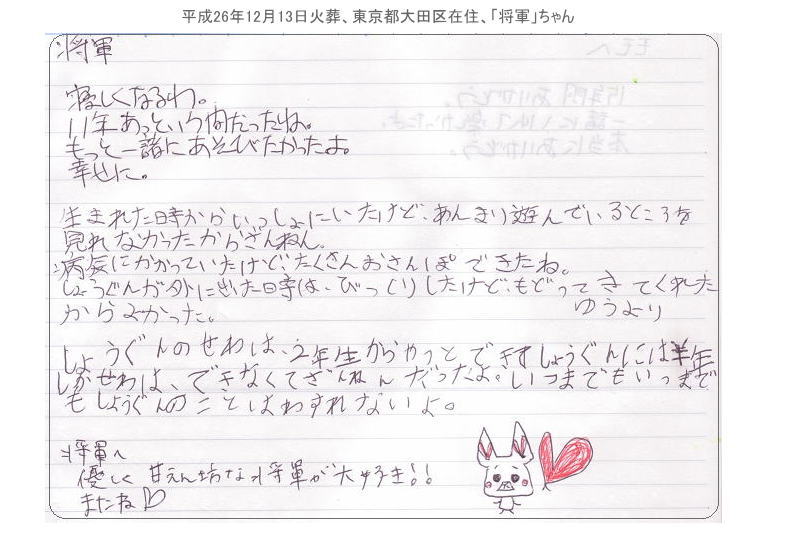 平成26年12月13日火葬、東京都大田区在住、「将軍」ちゃん
将軍
寂しくなるわ。
11年あっという間だったね。
もっと一緒にあそびたかったよ。
幸せに。
生まれた時からいっしょにいたけど、あんまり遊んでいるところを
見れなかったからざんねん。
病気にかかっていたけど、たくさんおさんぽできたね。
しょうぐんが外にでた時は、びっくりしたけど、もどってきてくれた
からよかった。
ゆうより
しょうぐんのせわは、2年生からやっとできてしょうぐんには半年
しかせわは、できなくてざんねんだったよ。いつまでもいつまで
もしょうぐんのことはわすれないよ。
将軍へ
優しく甘えん坊な将軍が大好き!!
またね♡